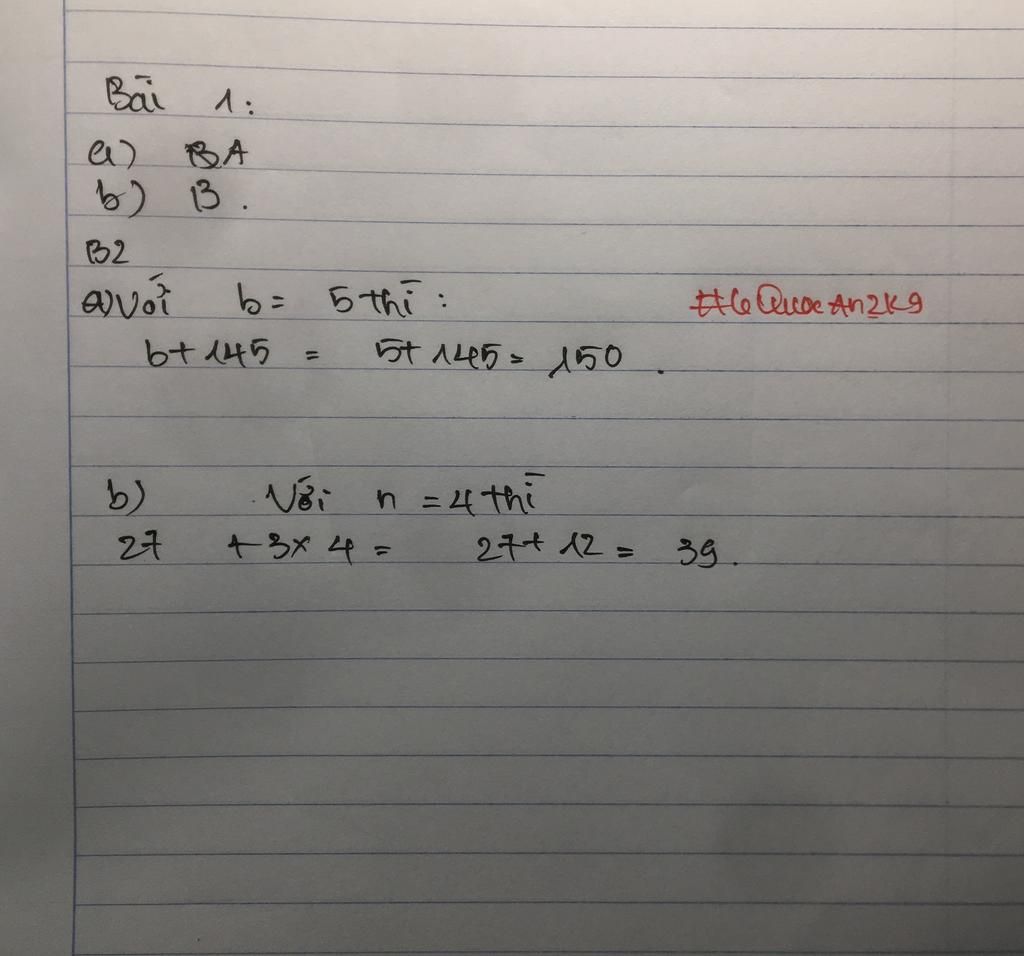 Bài 1:
a) BA
b) B.
B2
a) Với b = 5 thì:
b + 145 = 5 + 145 = 150.
#LeQuocAn2K9
b) Với n = 4 thì
27 + 3 x 4 = 27 + 12 = 39.